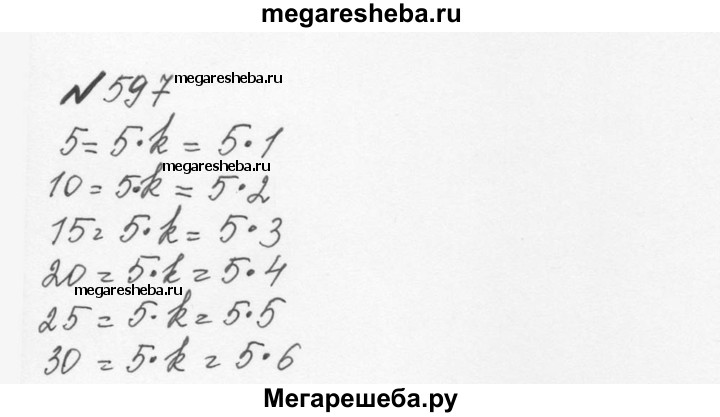 megaresheba.ru
№ 597 megaresheba.ru
5 = 5·k = 5·1
megaresheba.ru
10 = 5·k = 5·2
15 = 5·k = 5·3
20 = 5·k = 5·4
megaresheba.ru
25 = 5·k = 5·5
30 = 5·k = 5·6
Мегарешеба.ру